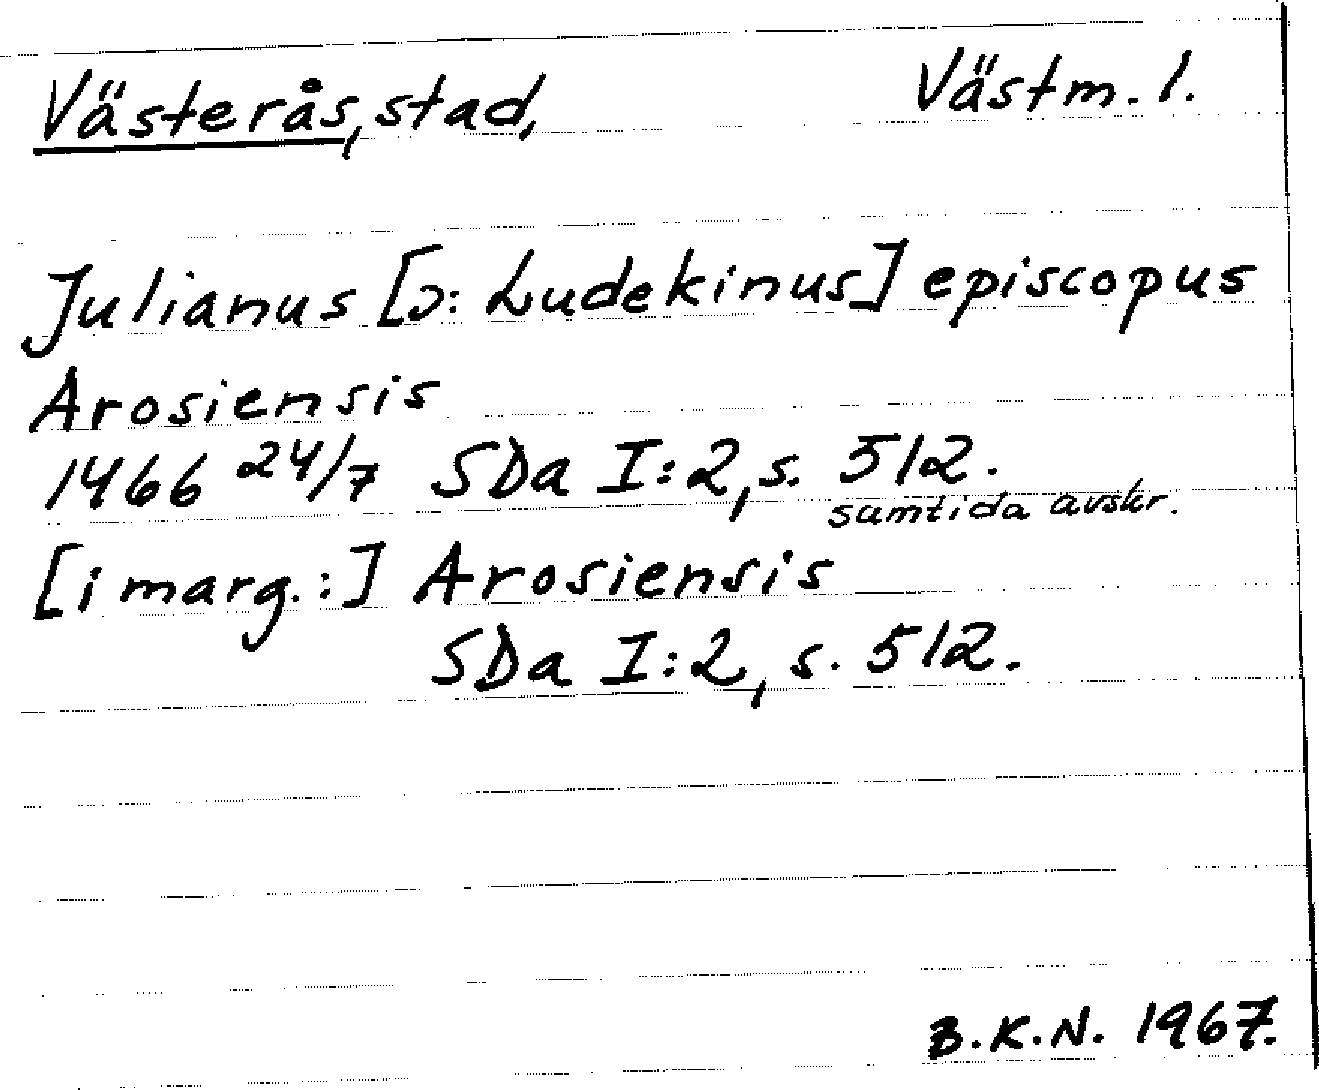 Västerås, stad, Västm. l.
Julianus [ɔ: Ludekinus] episcopus
Arosiensis
1466 24/7 SDa I:2, s. 512.
samtida avskr.
[i marg.:] Arosiensis
SDa I:2, s. 512.
B.K.N. 1967.